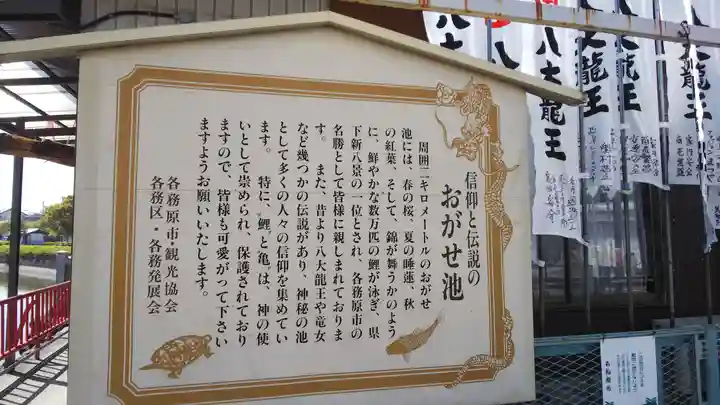 信仰と伝説の
おがせ池
周囲二キロメートルのおがせ
池には、春の桜、夏の睡蓮、秋
の紅葉、そして、錦が舞うかのよう
に、鮮やかな数万匹の鯉が泳ぎ、県
下新八景の一位とされ、各務原市の
名勝として皆様に親しまれておりま
す。また、昔より八大龍王や竜女
など幾つかの伝説があり、神秘の池
として多くの人々の信仰を集めてい
ます。特に、鯉と亀は、神の使
いとして崇められ、保護されており
ますので、皆様も可愛がって下さい
ますようお願いいたします。
各務原市・観光協会
各務区・各務発展会
八大龍王
大龍王
龍王